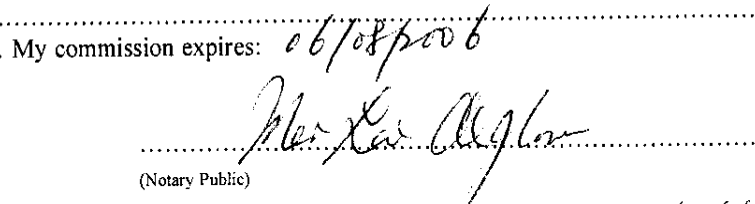 . My commission expires: 06/08/2006
(Notary Public)